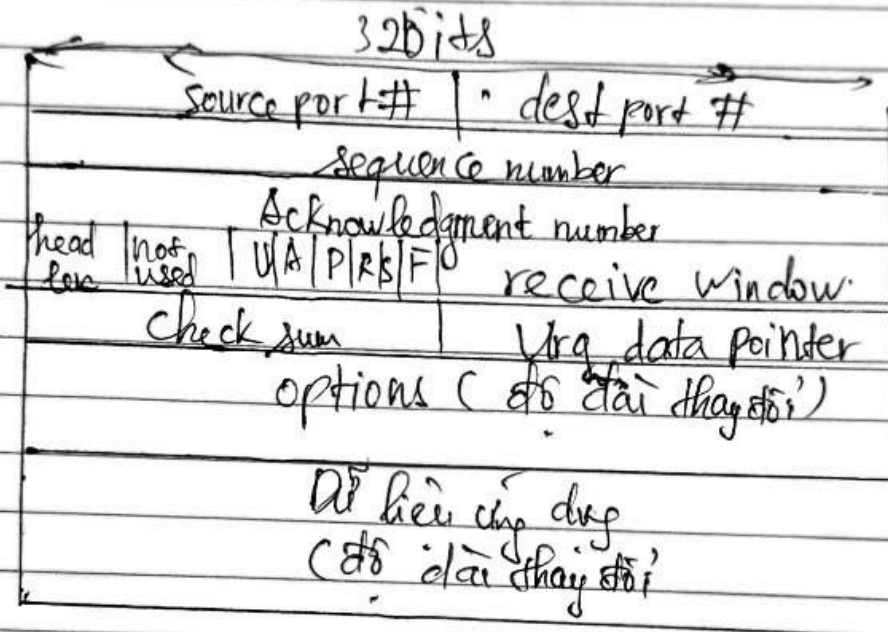 32Bits
source port # | dest port #
sequence number
Acknowledgment number
head len | not used | U|A|P|R|S|F| receive window
check sum | Urg data pointer
options (độ dài thay đổi)
Dữ liệu ứng dụng
(độ dài thay đổi